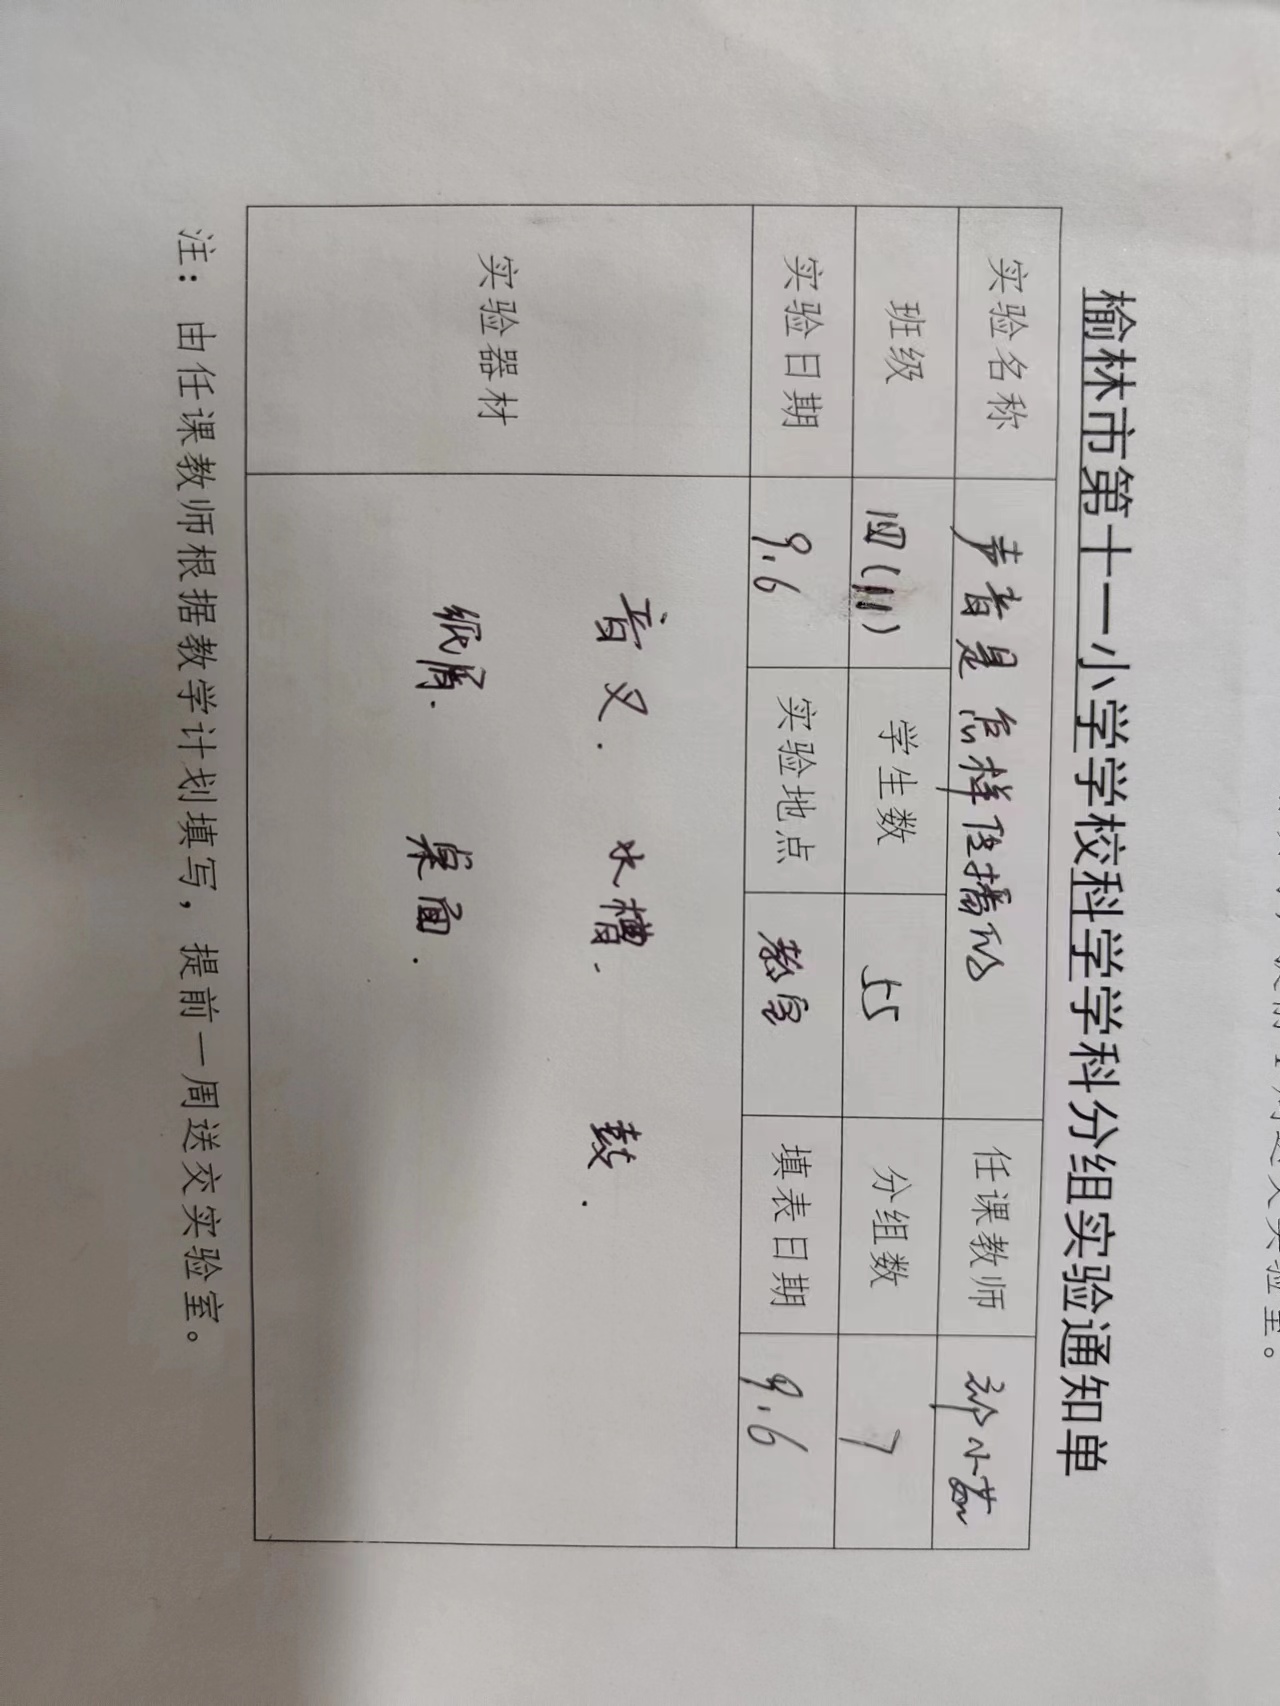 榆林市第十一小学学校科学学科分组实验通知单
实验名称 声音是怎样传播的 任课教师
班级 四(11) 学生数 55 分组数 7
实验日期 9.6 实验地点 教室 填表日期 9.6
实验器材
音叉. 水槽. 鼓.
纸屑. 桌面.
注：由任课教师根据教学计划填写，提前一周送交实验室。